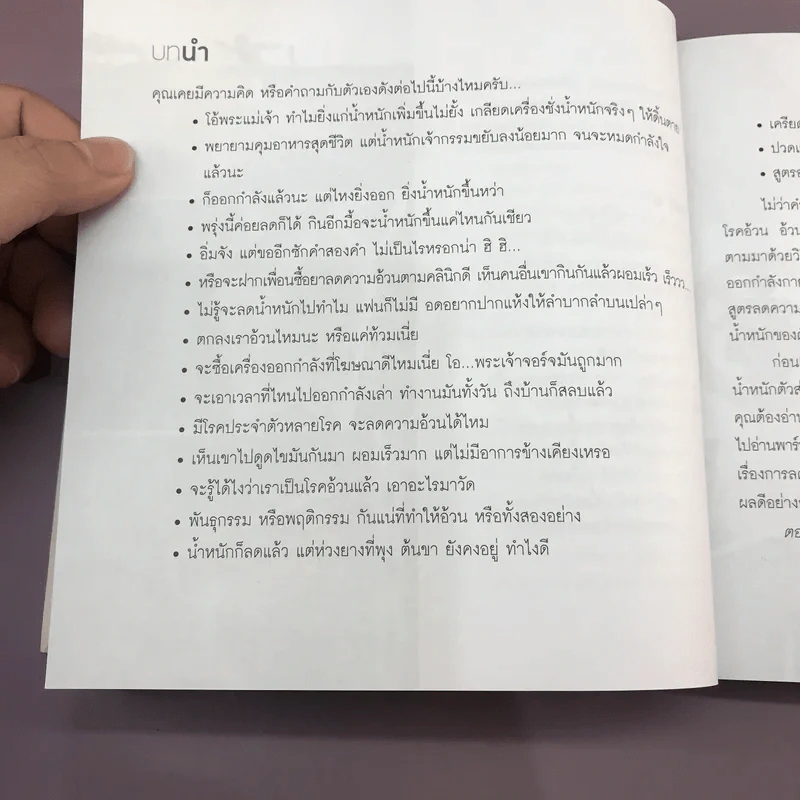 บทนำ
คุณเคยมีความคิด หรือคำถามกับตัวเองดังต่อไปนี้บ้างไหมครับ...
• โอ้พระแม่เจ้า ทำไมยิ่งแก่น้ำหนักเพิ่มขึ้นไม่ยั้ง เกลียดเครื่องชั่งน้ำหนักจริงๆ ให้ดิ้นตาย
• พยายามคุมอาหารสุดชีวิต แต่น้ำหนักเจ้ากรรมขยับลงน้อยมาก จนจะหมดกำลังใจ
แล้วนะ
• ก็ออกกำลังแล้วนะ แต่ไหงยิ่งออก ยิ่งน้ำหนักขึ้นหว่า
• พรุ่งนี้ค่อยลดก็ได้ กินอีกมื้อจะน้ำหนักขึ้นแค่ไหนกันเชียว
• อิ่มจัง แต่ขออีกซักคำสองคำ ไม่เป็นไรหรอกน่า ฮิ ฮิ...
• หรือจะฝากเพื่อนซื้อยาลดความอ้วนตามคลินิกดี เห็นคนอื่นเขากินกันแล้วผอมเร็ว เร็ววว...
• ไม่รู้จะลดน้ำหนักไปทำไม แฟนก็ไม่มี อดอยากปากแห้งให้ลำบากลำบนเปล่าๆ
• ตกลงเราอ้วนไหมนะ หรือแค่ท้วมเนี่ย
• จะซื้อเครื่องออกกำลังที่โฆษณาดีไหมเนี่ย โอ...พระเจ้าจอร์จมันถูกมาก
• จะเอาเวลาที่ไหนไปออกกำลังเล่า ทำงานมันทั้งวัน ถึงบ้านก็สลบแล้ว
• มีโรคประจำตัวหลายโรค จะลดความอ้วนได้ไหม
• เห็นเขาไปดูดไขมันกันมา ผอมเร็วมาก แต่ไม่มีอาการข้างเคียงเหรอ
• จะรู้ได้ไงว่าเราเป็นโรคอ้วนแล้ว เอาอะไรมาวัด
• พันธุกรรม หรือพฤติกรรม กันแน่ที่ทำให้อ้วน หรือทั้งสองอย่าง
• น้ำหนักก็ลดแล้ว แต่ห่วงยางที่พุง ต้นขา ยังคงอยู่ ทำไงดี
• เครียด
• ปวด
• สูตร
ไม่ว่า
โรคอ้วน อ้วน
ตามมาด้วย
ออกกำลังกาย
สูตรลดความ
น้ำหนักของ
ก่อน
น้ำหนักตัว
คุณต้องอ่าน
ไปอ่าน
เรื่องการ
ผลดีอย่าง